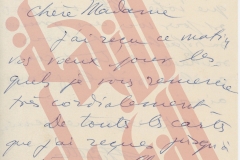 Chère Madame
j'ai reçu ce matin
vos vœux pour les
quels je vous remercie
très cordialement
De toutes les cartes
que j'ai reçues jusqu'à